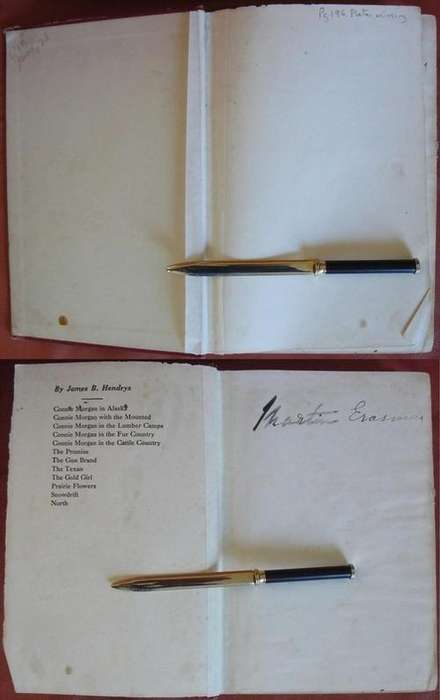 Pg 196 Plate missing
By James B. Hendryx
Connie Morgan in Alaska
Connie Morgan with the Mounted
Connie Morgan in the Lumber Camps
Connie Morgan in the Fur Country
Connie Morgan in the Cattle Country
The Promise
The Gun Brand
The Texan
The Gold Girl
Prairie Flowers
Snowdrift
North
Martin Erasmus